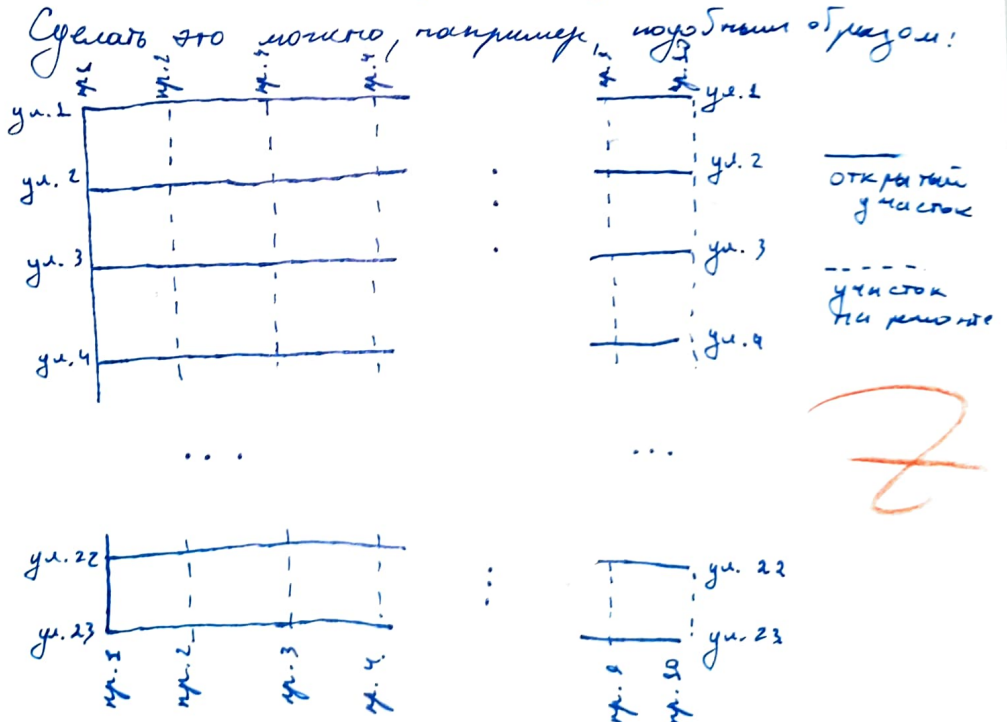 Сделать это можно, например, подобным образом:
пр.1 пр.2 пр.4 пр.4 пр.9 пр.10
ул.1 ул.1
ул.2 ул.2
ул.3 ул.3
ул.4 ул.4
открытый
участок
участок
на ремонте
... ...
ул.22 ул.22
ул.23 ул.23
пр.1 пр.2 пр.3 пр.4. пр.9 пр.10
7